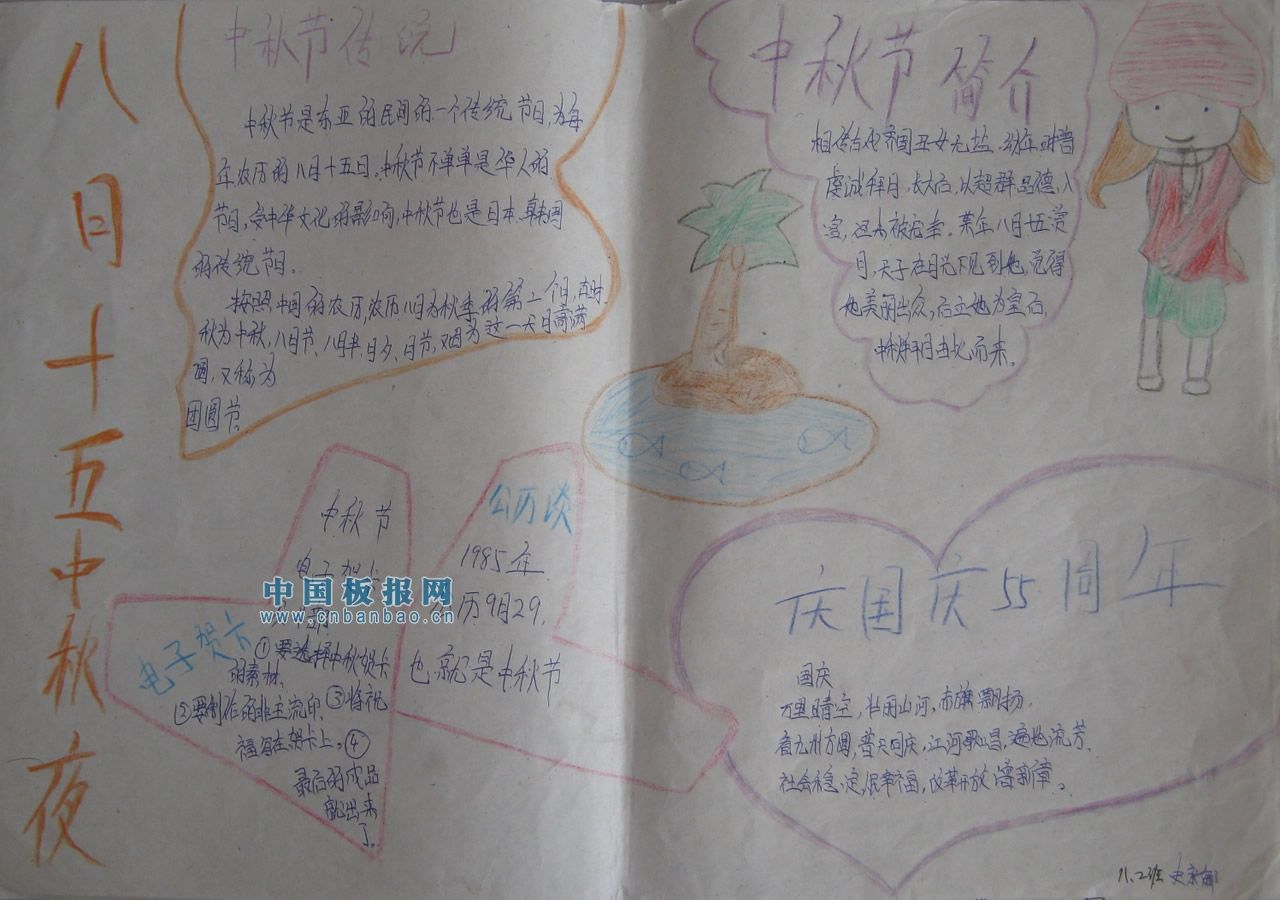 八月十五中秋夜
中秋节传统
中秋节是东亚的民间的一个传统节日,为每
年农历的八月十五日。中秋节不单单是华人的
节日,受中华文化的影响,中秋节也是日本、韩国
的传统节日。
按照中国的农历,农历八月为秋季的第二个月,古时
秋为中秋,八月节、八月半、月夕、月节,又因为这一天月亮满
圆,又称为
团圆节。
中秋节简介
相传古代齐国丑女无盐,幼年时曾
虔诚拜月,长大后,以超群品德,入
宫,
某年八月十五赏
月,天子在月光下见到她,觉得
她美丽出众,后立她为皇后,
中秋拜月由此而来。
中秋节
电子贺卡
中国板报网
www.cnbanbao.cn
电子贺卡
①要选择中秋贺卡
的素材、
②要制作的非主流印、③将祝
福写在贺卡上。④
最后的成品
就出来
了。
公历谈
1985年
公历9月29,
也就是中秋节
庆国庆55周年
国庆
万里晴空,壮丽山河,赤旗飘扬.
看九州方圆,普天同庆,江河歌唱,遍地流芳.
社会稳定,民幸福,改革开放谱新章。
八.2班